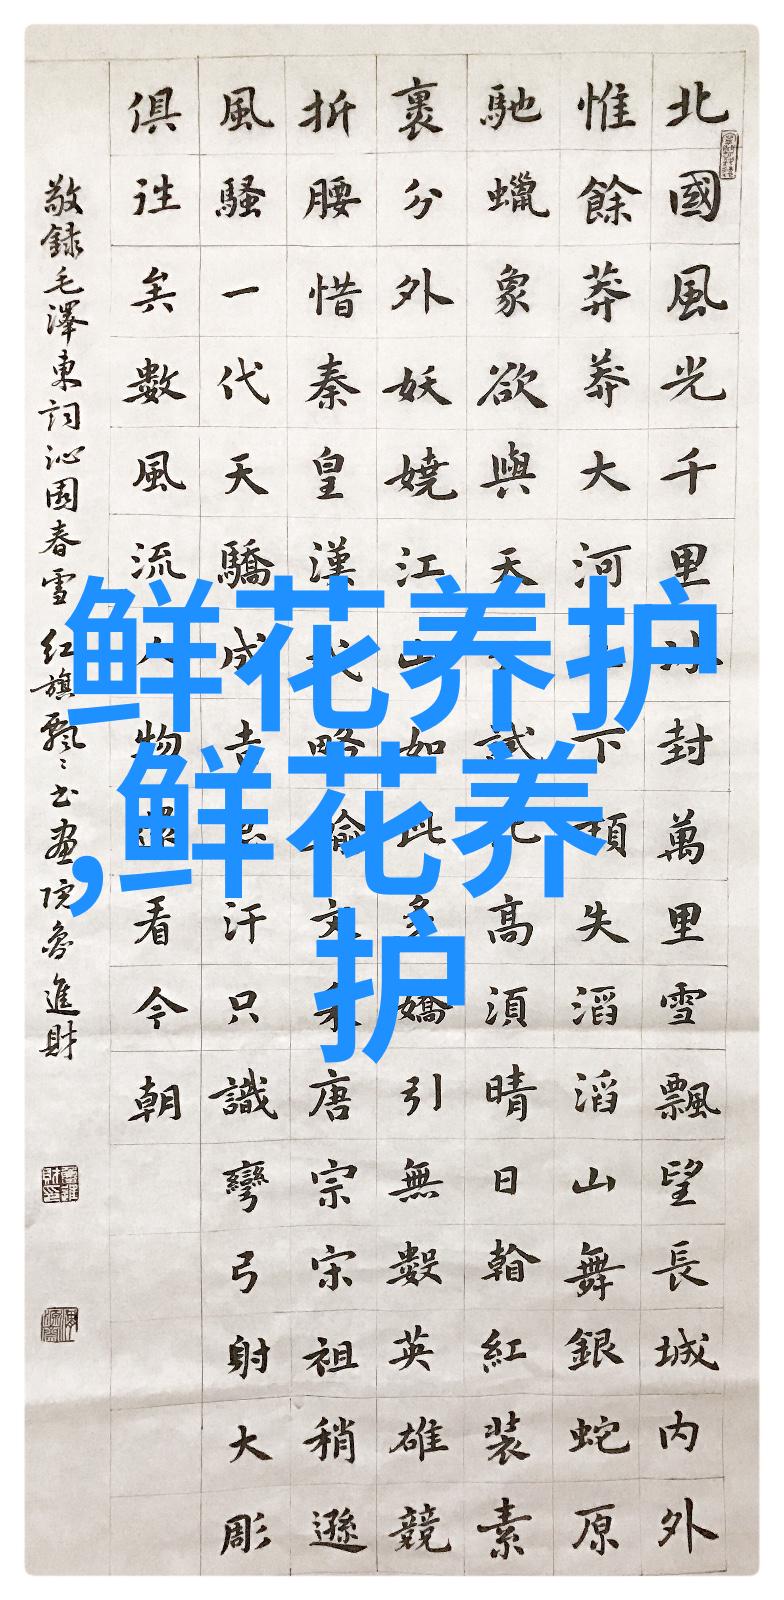 北國風光千里冰封萬里雪飄望長城內外
惟餘莽莽大河上下頓失滔滔山舞銀蛇原
馳蠟象欲與天公試比高須晴日看紅裝素
裹分外妖嬈江山如此多嬌引無數英雄競
折腰惜秦皇漢武略輸文采唐宗宋祖稍遜
風騷一代天驕成吉思汗只識彎弓射大彫
俱往矣數風流人物還看今朝
敬録毛澤東詞沁園春雪 紅旗飄〻書畫院魯進財
鲜花养护
,鲜花养
护